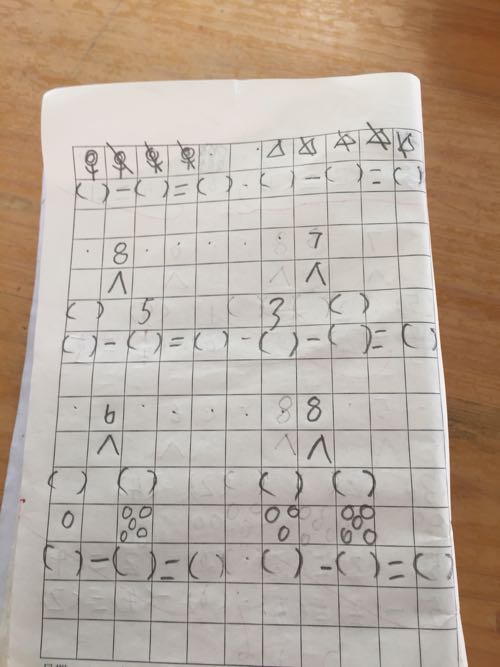 ( ) - ( ) = ( ) · ( ) - ( ) = ( )
8 7
∧ ∧
( ) 5 3 ( )
( ) - ( ) = ( ) - ( ) - ( ) = ( )
6 8
∧ ∧
( ) ( ) ( ) ( )
( ) - ( ) = ( ) · ( ) - ( ) = ( )